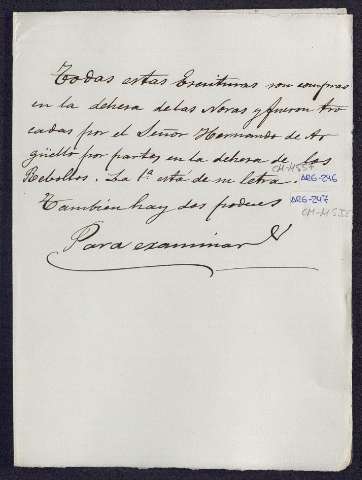 Todas estas Escrituras son compras
en la dehesa de las Noras y fueron tro
cadas por el Señor Hernando de Ar
güello por partes en la dehesa de los
Rebollos. La 1ª está de su letra.
CM-M557
ARG-246
Tambien hay dos poderes
ARG-247
Para examinar